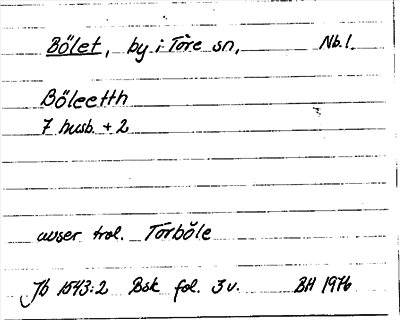 Bölet, by i Töre sn, Nb l.
Böleetth
7 husb. + 2
avser trol. Törböle
Jb 1543:2 Bsk fol. 3 v. BH 1976